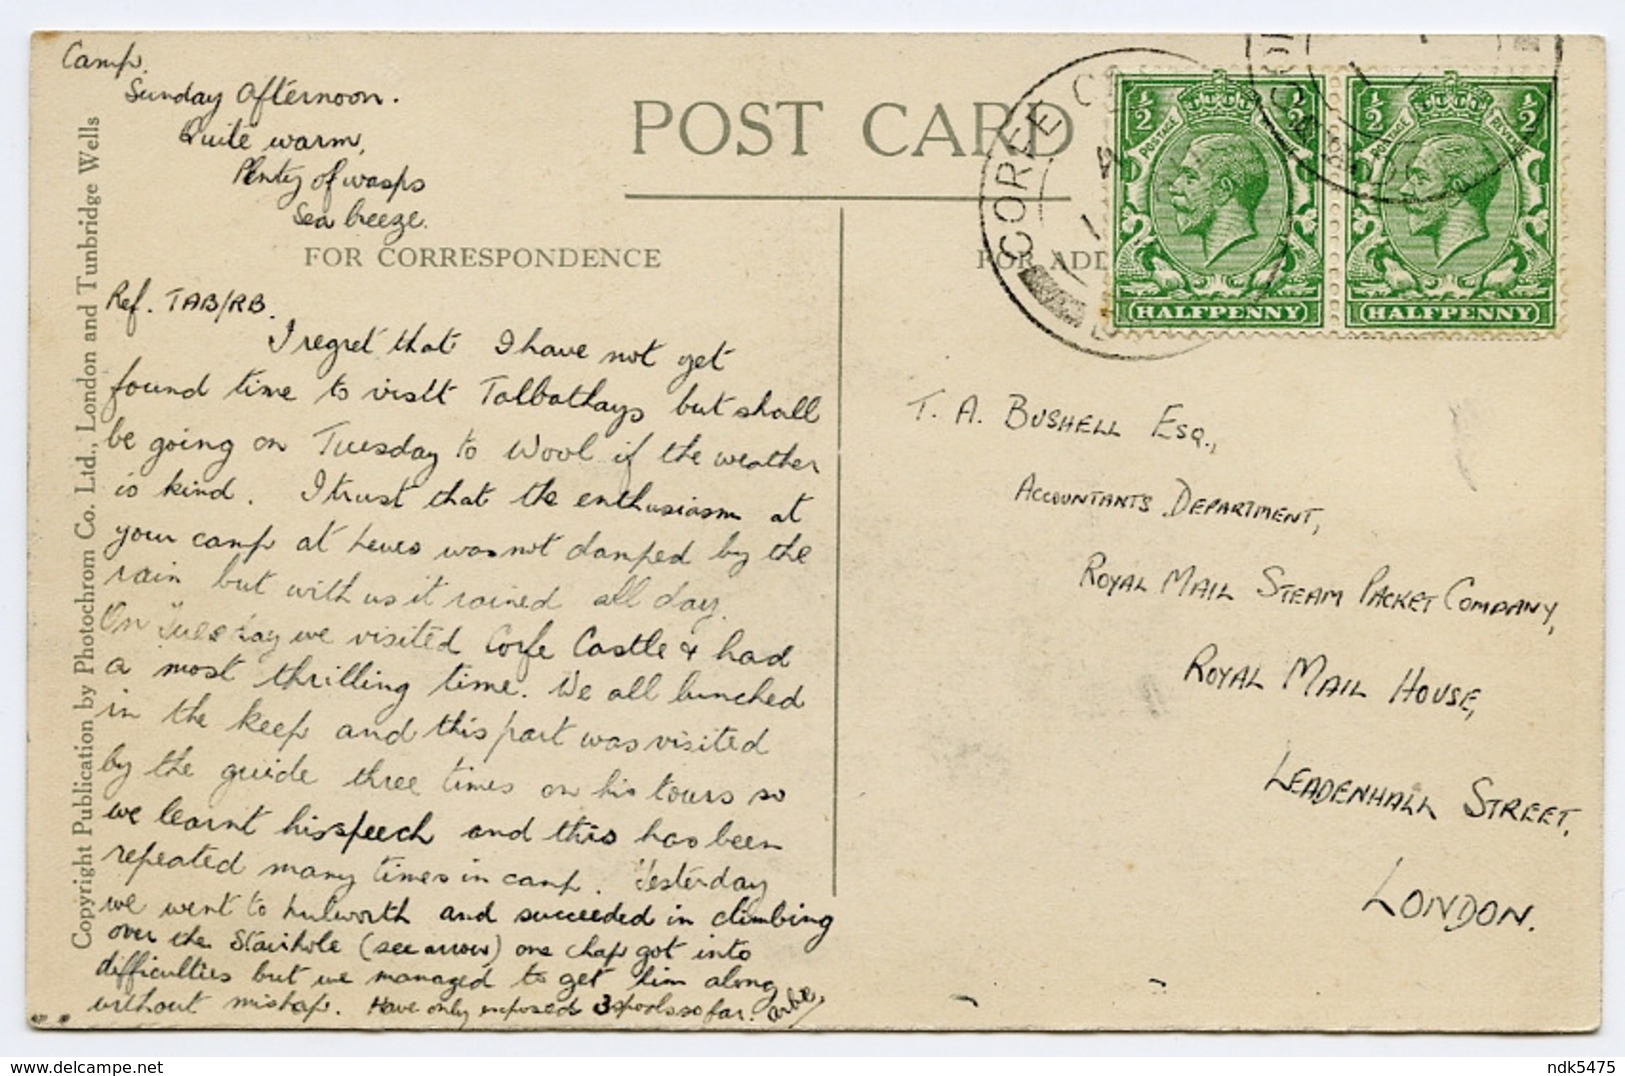 Camp.
Sunday afternoon.
Quite warm,
Plenty of wasps
Sea breeze.
POST CARD
FOR CORRESPONDENCE
Copyright Publication by Photochrom Co. Ltd., London and Tunbridge Wells
Ref. TAB/RB.
I regret that I have not yet
found time to visit Talbothays but shall
be going on Tuesday to Wool if the weather
is kind. I trust that the enthusiasm at
your camp at Lewes was not damped by the
rain but with us it rained all day.
On Tuesday we visited Corfe Castle & had
a most thrilling time. We all bunched
in the keep and this part was visited
by the guide three times on his tours so
we learnt his speech and this has been
repeated many times in camp. Yesterday
we went to Lulworth and succeeded in climbing
over the Stairhole (see arrow) one chap got into
difficulties but we managed to get him along
without mishap. Have only exposed 3 spools so far.
FOR ADD
CORFE C
½ ½
POSTAGE REVENUE
HALFPENNY
½ ½
POSTAGE REVENUE
HALFPENNY
T. A. BUSHELL ESQ.,
ACCOUNTANTS DEPARTMENT,
ROYAL MAIL STEAM PACKET COMPANY,
ROYAL MAIL HOUSE,
LEADENHALL STREET.
LONDON.
www.delcampe.net
ndk5475